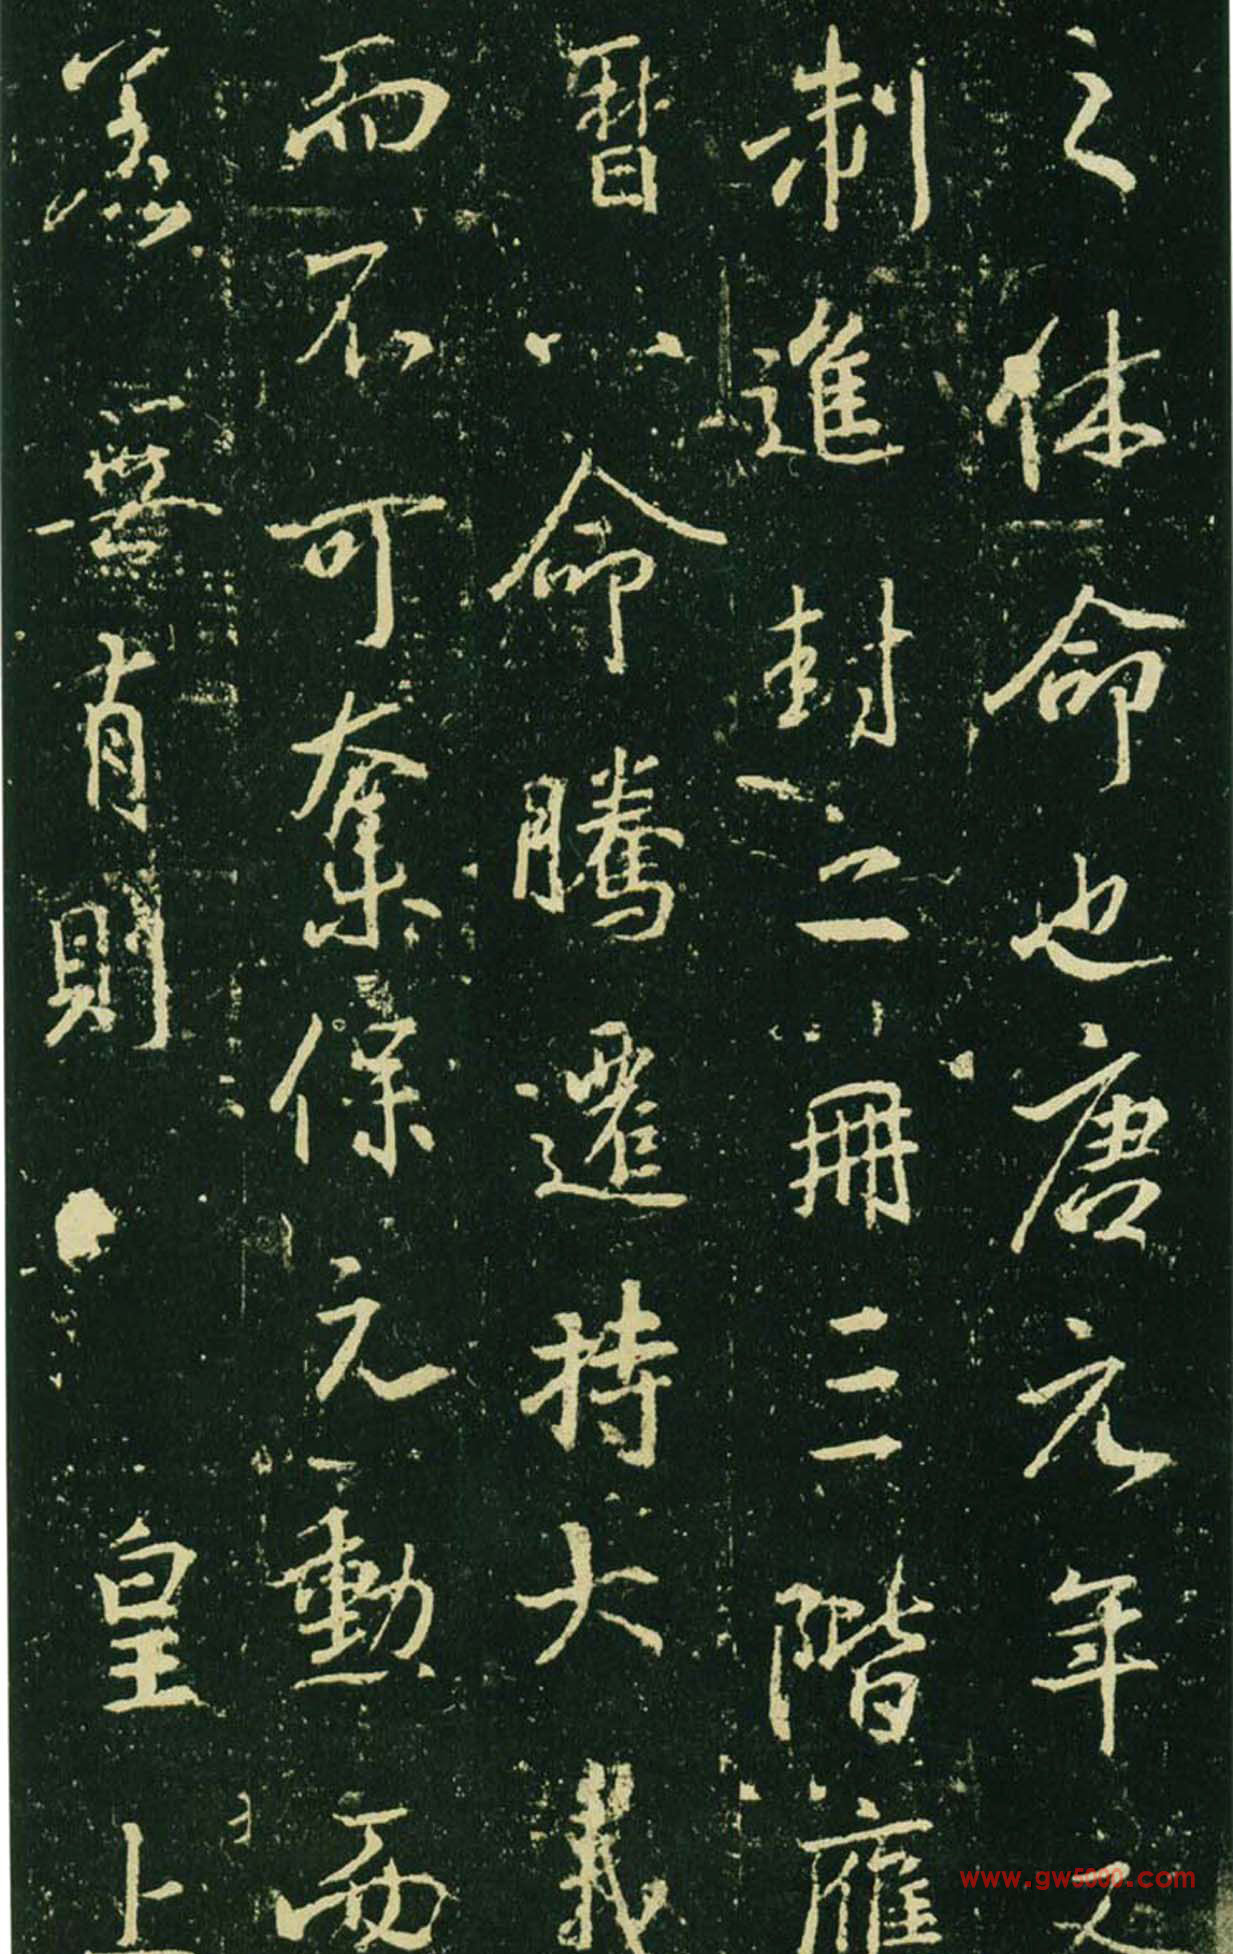 之休命也唐元年之
制進封之二冊三階雁
曆八命騰遷持大義
而不可奪保元勳而
無肯則皇上
www.gw5000.com